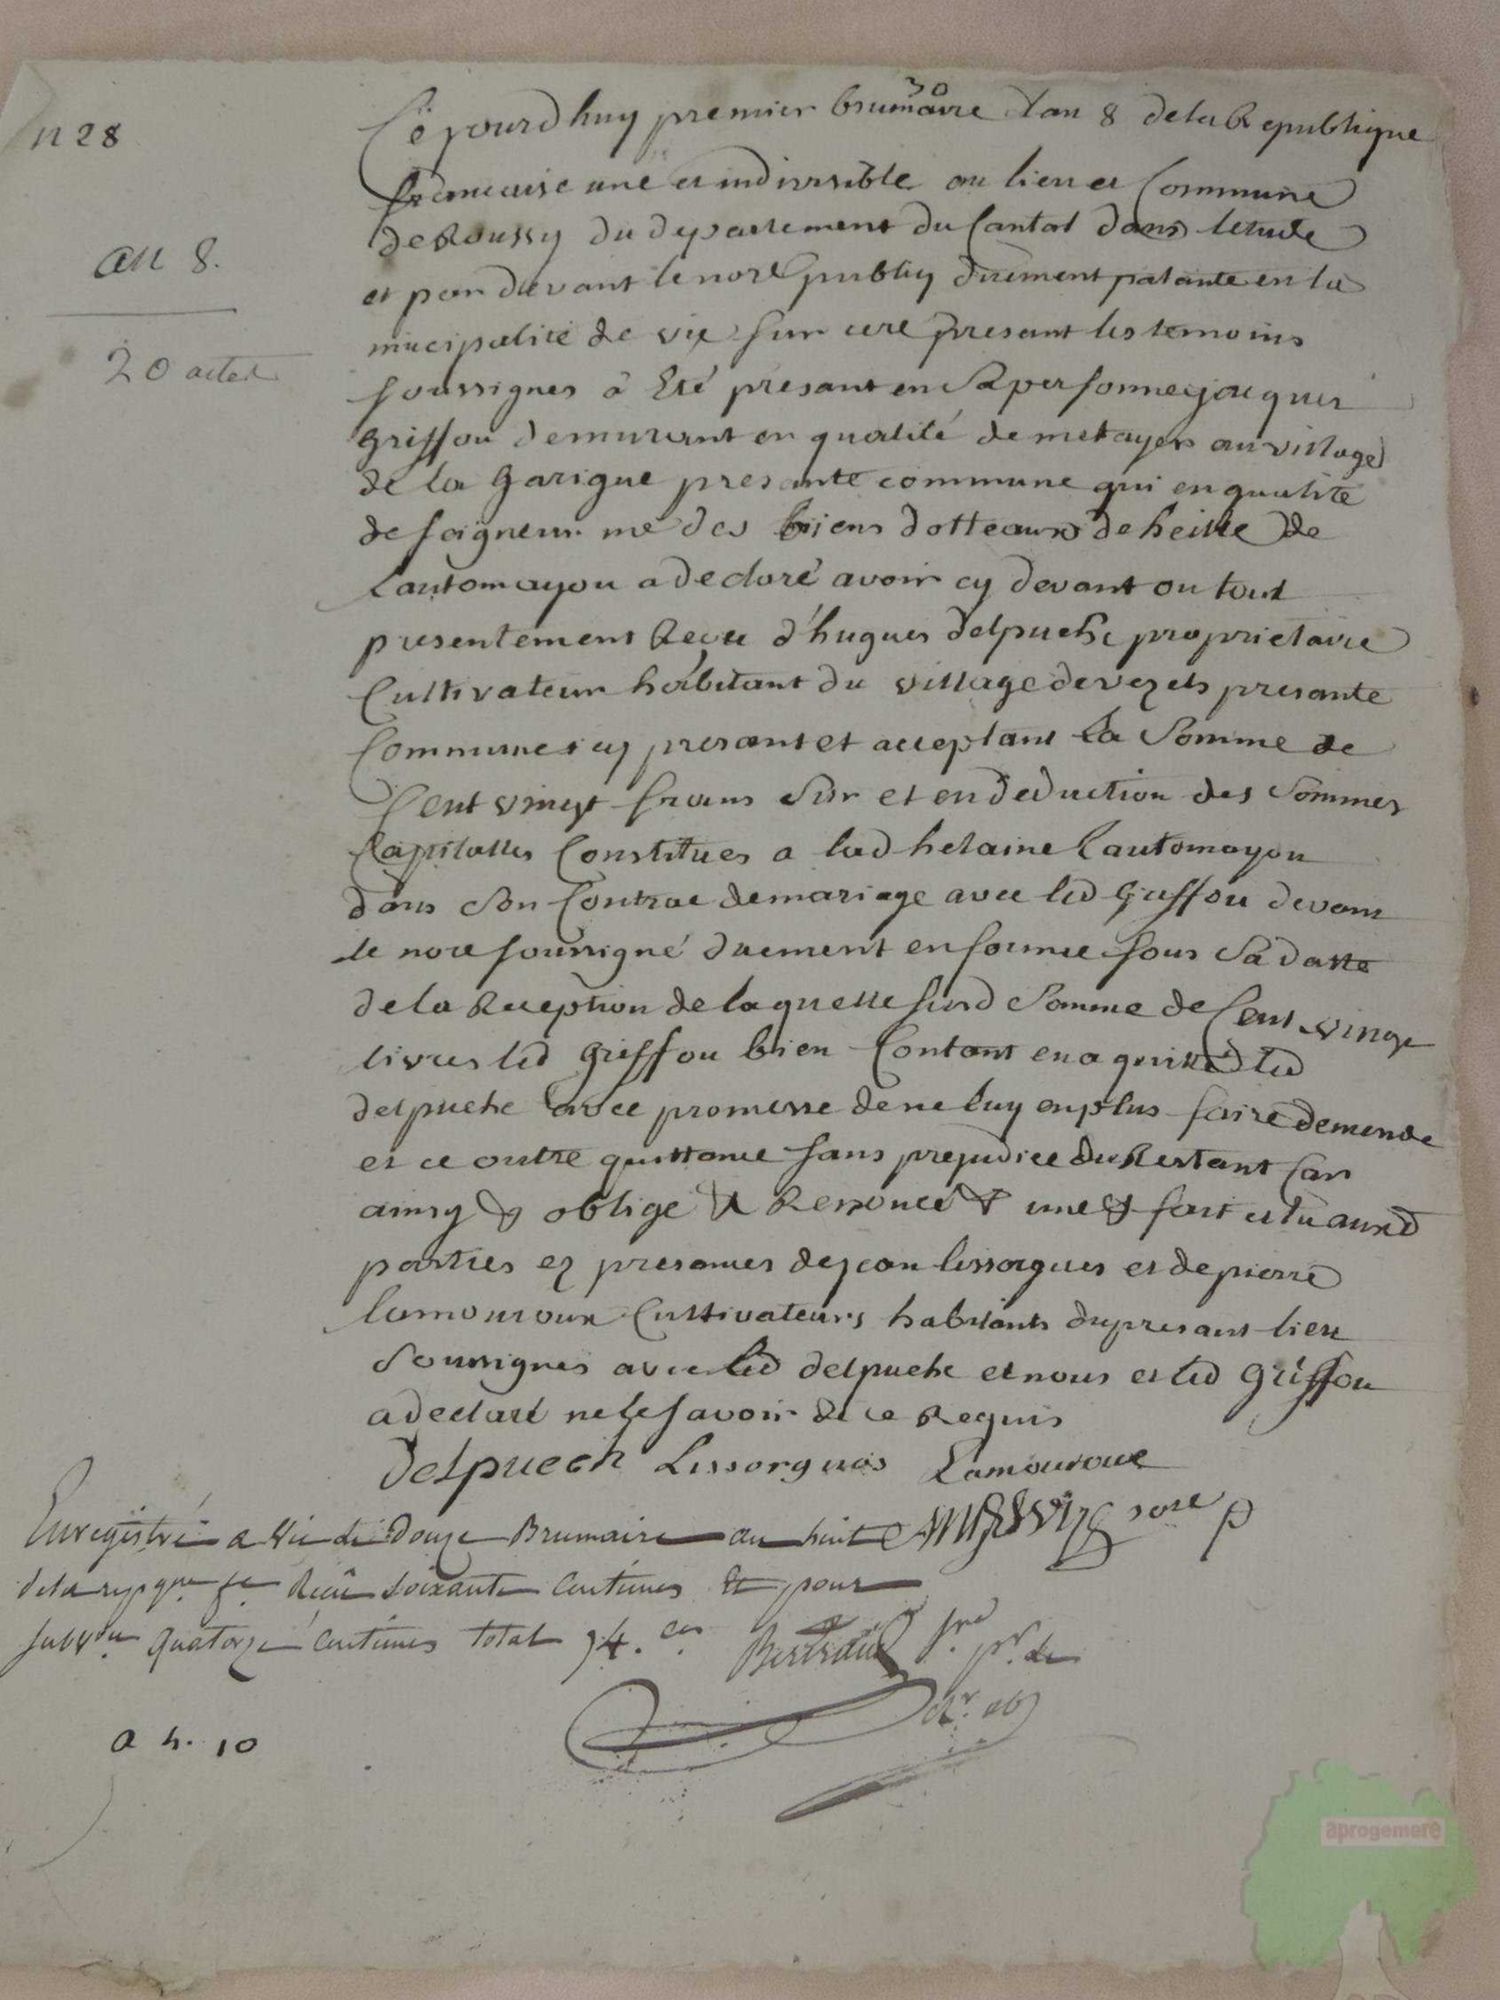 n 28
an 8.
20 actes
Cejourdhuy premier brumaire Lan 8 dela Republique
francaise une et indivisible au lieu et Commune
de Roussy du departement du Cantal dans letude
et par devant le nore publiq duement patante en la
mucipalité de vic sur cere presant les temoins
soussignes á Eté présant en Sa personne jacques
griffou demurant en qualité de metayer au village
de la garigue presante commune qui en qualité
de soigneur me des biens dotteaux de heille de
Lautomayou a declaré avoir cy devant ou tout
presentement Recu d'hugues delpuehc proprietaire
Cultivateur habitant du village de vezels presante
Commune icy presant et acceptant La Somme de
Cent vingt frans Sur et en deduction des Sommes
Capitalles Constitues a lad helaine Lautomayou
dans Son Contrac demariage avec led Griffou devant
le nore soussigné duement en forme sous Sa datte
de la Reception de laquelle susd Somme de Cent vingt
livres led griffou bien Contant en a quitté led
delpuehc avec promesse de ne luy en plus faire demende
et ce outre quittance sans prejudice du Restant Car
ainsy & oblige & Renoncé & une & fait et lu auxd
parties ez presances de jean lissorgues et de pierre
lamouroux Cultivateurs habitants du presant lieu
Soussignes avec led delpuehc et nous et led Griffou
a declaré ne le savoir de ce Requis
Delpuech Lissorgues Lamouroux
nore p
Enregistré a Vic le Douze Brumaire an huit
dela repque. fe. Recu soixante centimes Et pour
subvon. quatorze centimes total 74. ces
Bertrand
a 4. 10
aprogemere